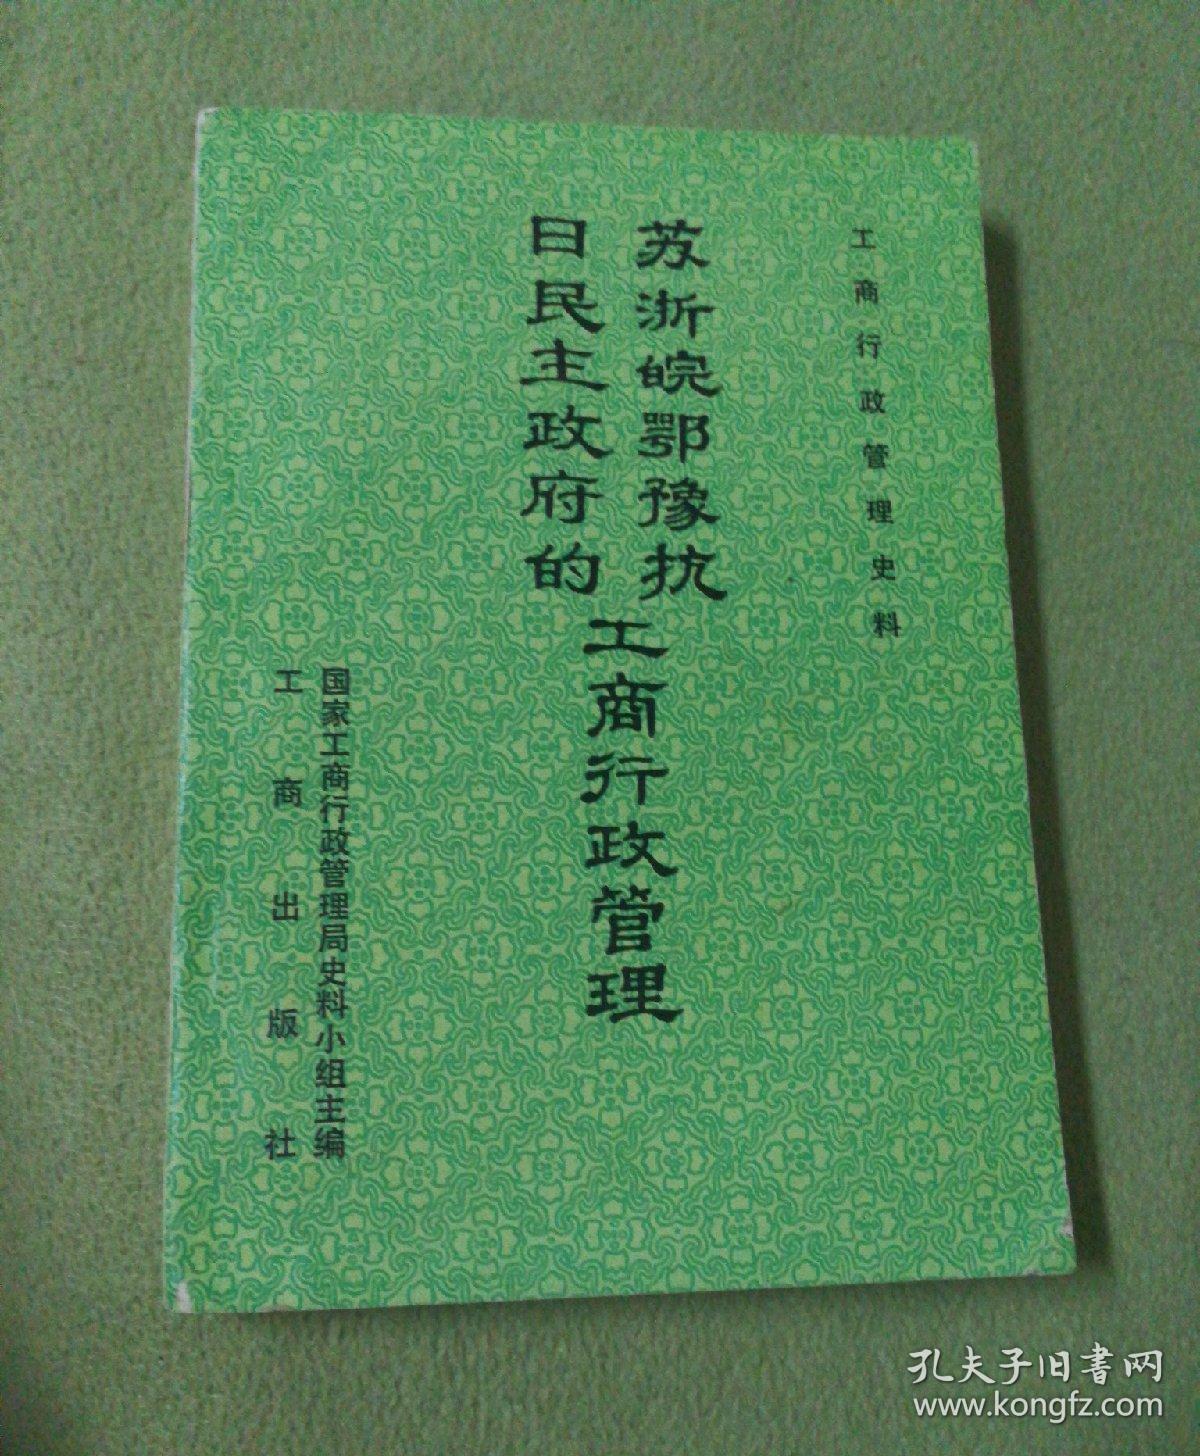 工商行政管理史料
苏浙皖鄂豫抗
日民主政府的
工商行政管理
国家工商行政管理局史料小组主编
工商出版社
孔夫子旧书网
www.kongfz.com